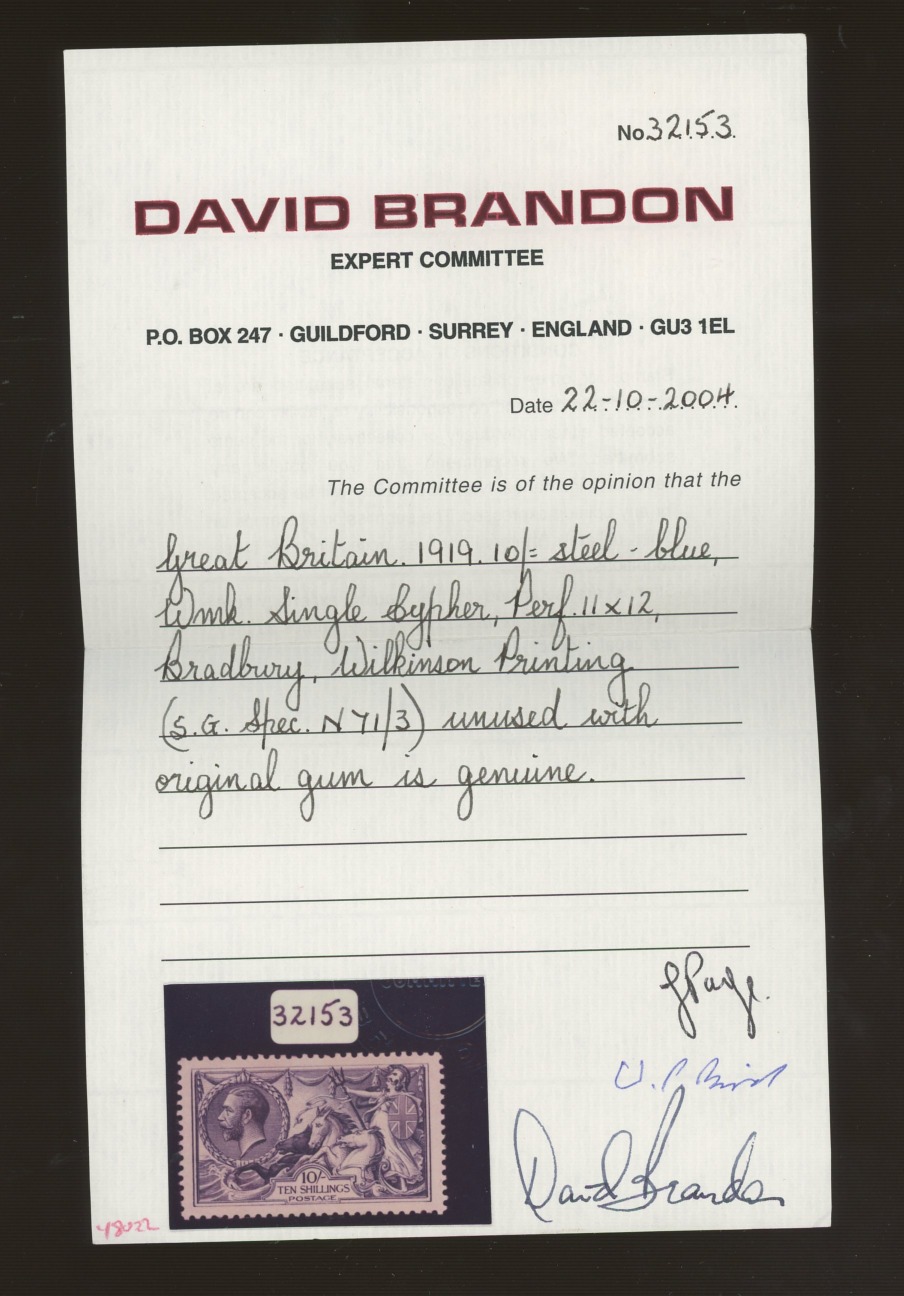 No 32153
DAVID BRANDON
EXPERT COMMITTEE
P.O. BOX 247 · GUILDFORD · SURREY · ENGLAND · GU3 1EL
Date 22-10-2004
The Committee is of the opinion that the
Great Britain. 1919. 10/= steel-blue,
Wmk. Single Cypher, Perf. 11 x 12,
Bradbury, Wilkinson Printing
(S.G. Spec. N71/3) unused with
original gum is genuine.
COMMITTEE
32153
10/-
TEN SHILLINGS
POSTAGE
David Brandon
48022